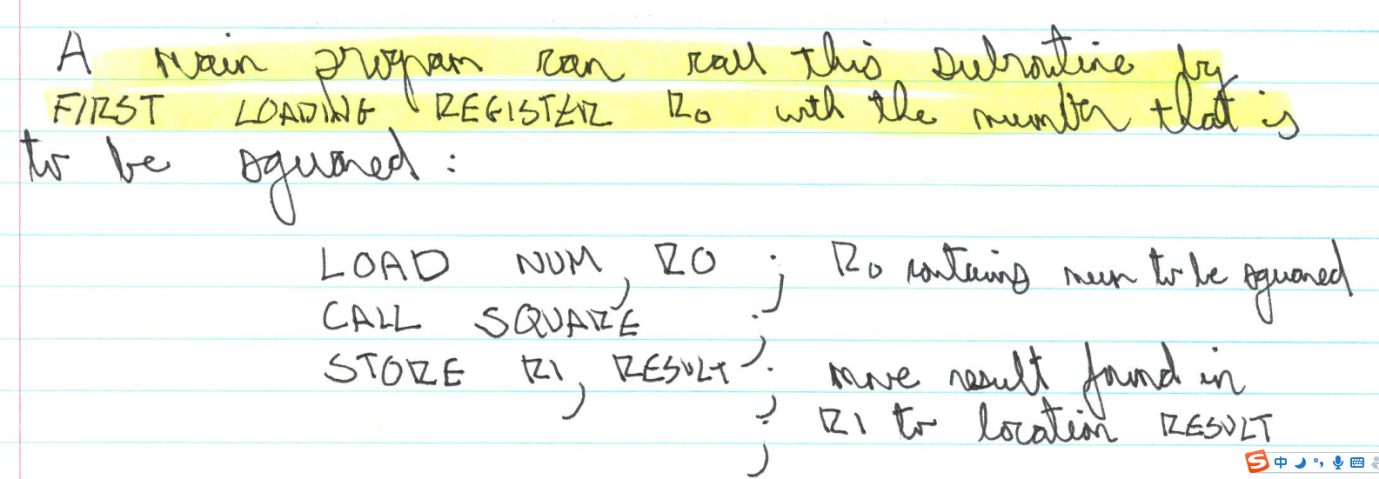 A main program can call this subroutine by
FIRST LOADING REGISTER R0 with the number that is
to be squared :
LOAD NUM, R0 ; R0 contains num to be squared
CALL SQUARE ;
STORE R1, RESULT ; move result found in
; R1 to location RESULT
;
中